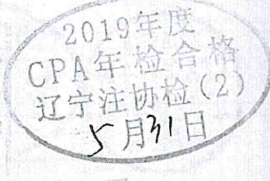 2019年度
CPA年检合格
辽宁注协检(2)
5月31日